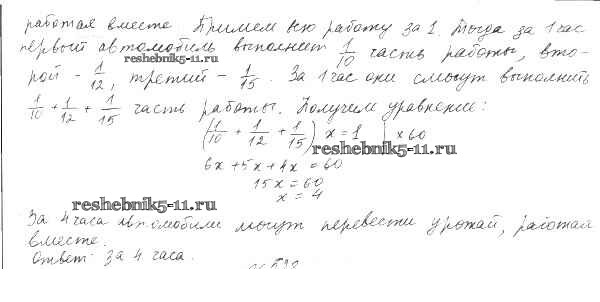 работая вместе. Примем всю работу за 1. Тогда за 1 час
первый автомобиль выполнит 1/10 часть работы, вто-
reshebnik5-11.ru
рой - 1/12, третий - 1/15. За 1 час они смогут выполнить
1/10 + 1/12 + 1/15 часть работы. Получим уравнение:
(1/10 + 1/12 + 1/15) x = 1 | x 60
reshebnik5-11.ru
6x + 5x + 4x = 60
15x = 60
reshebnik5-11.ru
x = 4
За 4 часа автомобили могут перевести урожай, работая
вместе.
Ответ: за 4 часа.